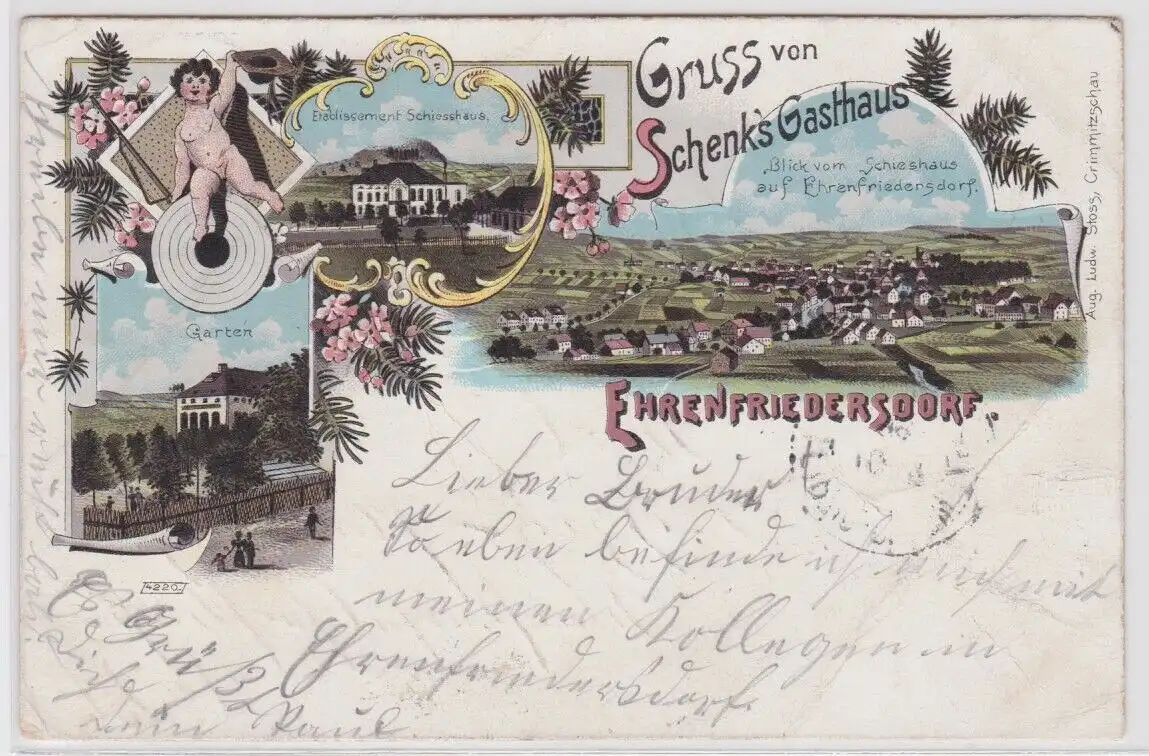 Gruss von
Schenk's Gasthaus
Etablissement Schiesshaus.
Blick vom Schieshaus
auf Ehrenfriedersdorf.
Garten
EHRENFRIEDERSDORF.
Aug. Ludw. Stoss, Crimmitzschau
4220.
Lieber Bruder
So eben befinde ich mich mit
meinen Kollegen in
Ehrenfriedersdorf.
Es Grüßt
Dich
dein Paul.